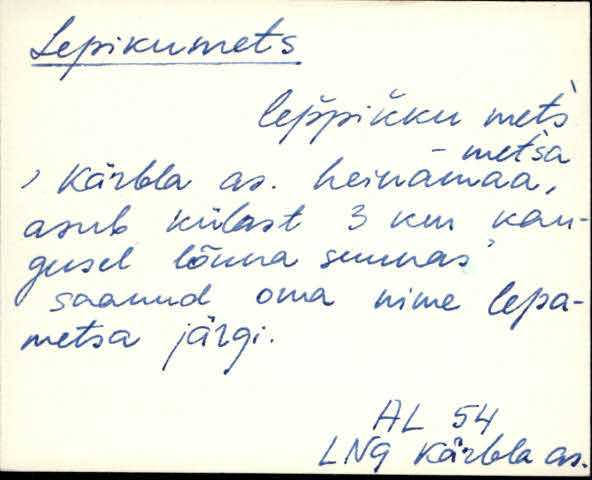 Lepikumets
lep̆pik̆ku met̀s
- met̀sa
, Kärbla as. heinamaa,
asub külast 3 km kau-
gusel lõuna suunas'
saanud oma nime lepa-
metsa järgi.
AL 54
LNG Kärbla as.